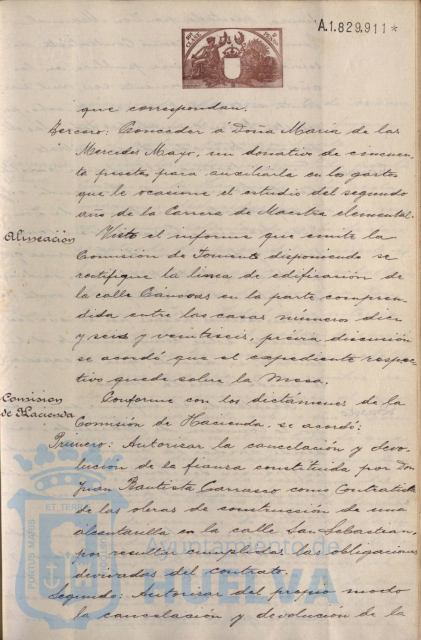 A.1.829.911*
que correspondan.
Tercero: Conceder á Doña María de las
Mercedes Mayo, un donativo de cincuen-
ta pesetas para auxiliarla en los gastos
que le ocasione el estudio del segundo
año de la Carrera de Maestra elemental.
Alineación
Visto el informe que emite la
Comisión de Fomento disponiendo se
rectifique la linea de edificación de
la calle Cánovas en la parte compren-
dida entre las casas números diez
y seis y veintiseis, prévia discusión
se acordó que el expediente respec-
tivo quede sobre la Mesa.
Comision
de Hacienda
Conforme con los dictámenes de la
Comisión de Hacienda, se acordó:
Primero: Autorizar la cancelación y devo-
lución de la fianza constituida por Don
Juan Bautista Carrasco como Contratista
de las obras de construcción de una
alcantarilla en la calle San Sebastian,
por resultar cumplidas las obligaciones
derivadas del contrato.
Segundo: Autorizar del propio modo
la cancelación y devolución de la
PORTUS MARIS
ET TERRÆ
Ayuntamiento de
HUELVA